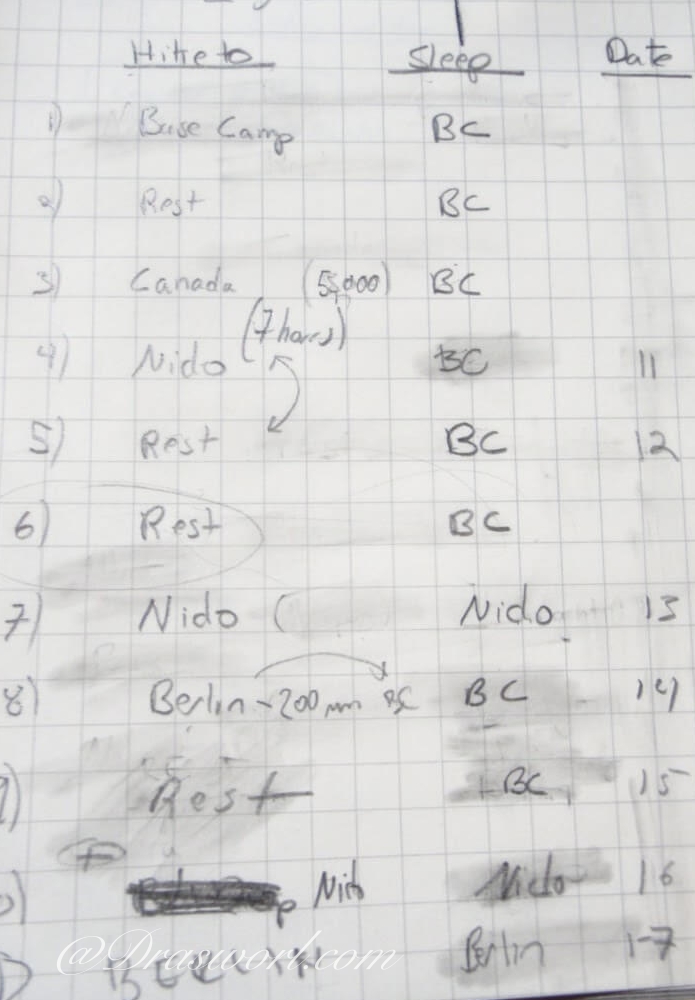 Hike to Sleep Date
1) Base Camp BC
2) Rest BC
3) Canada (55,000) BC
(7 hours)
4) Nido BC 11
5) Rest BC 12
6) Rest BC
7) Nido ( Nido 13
8) Berlin - 200 mm BC BC 14
9) Rest BC 15
Nido Nido 16
Berlin 17
@Draswork.com